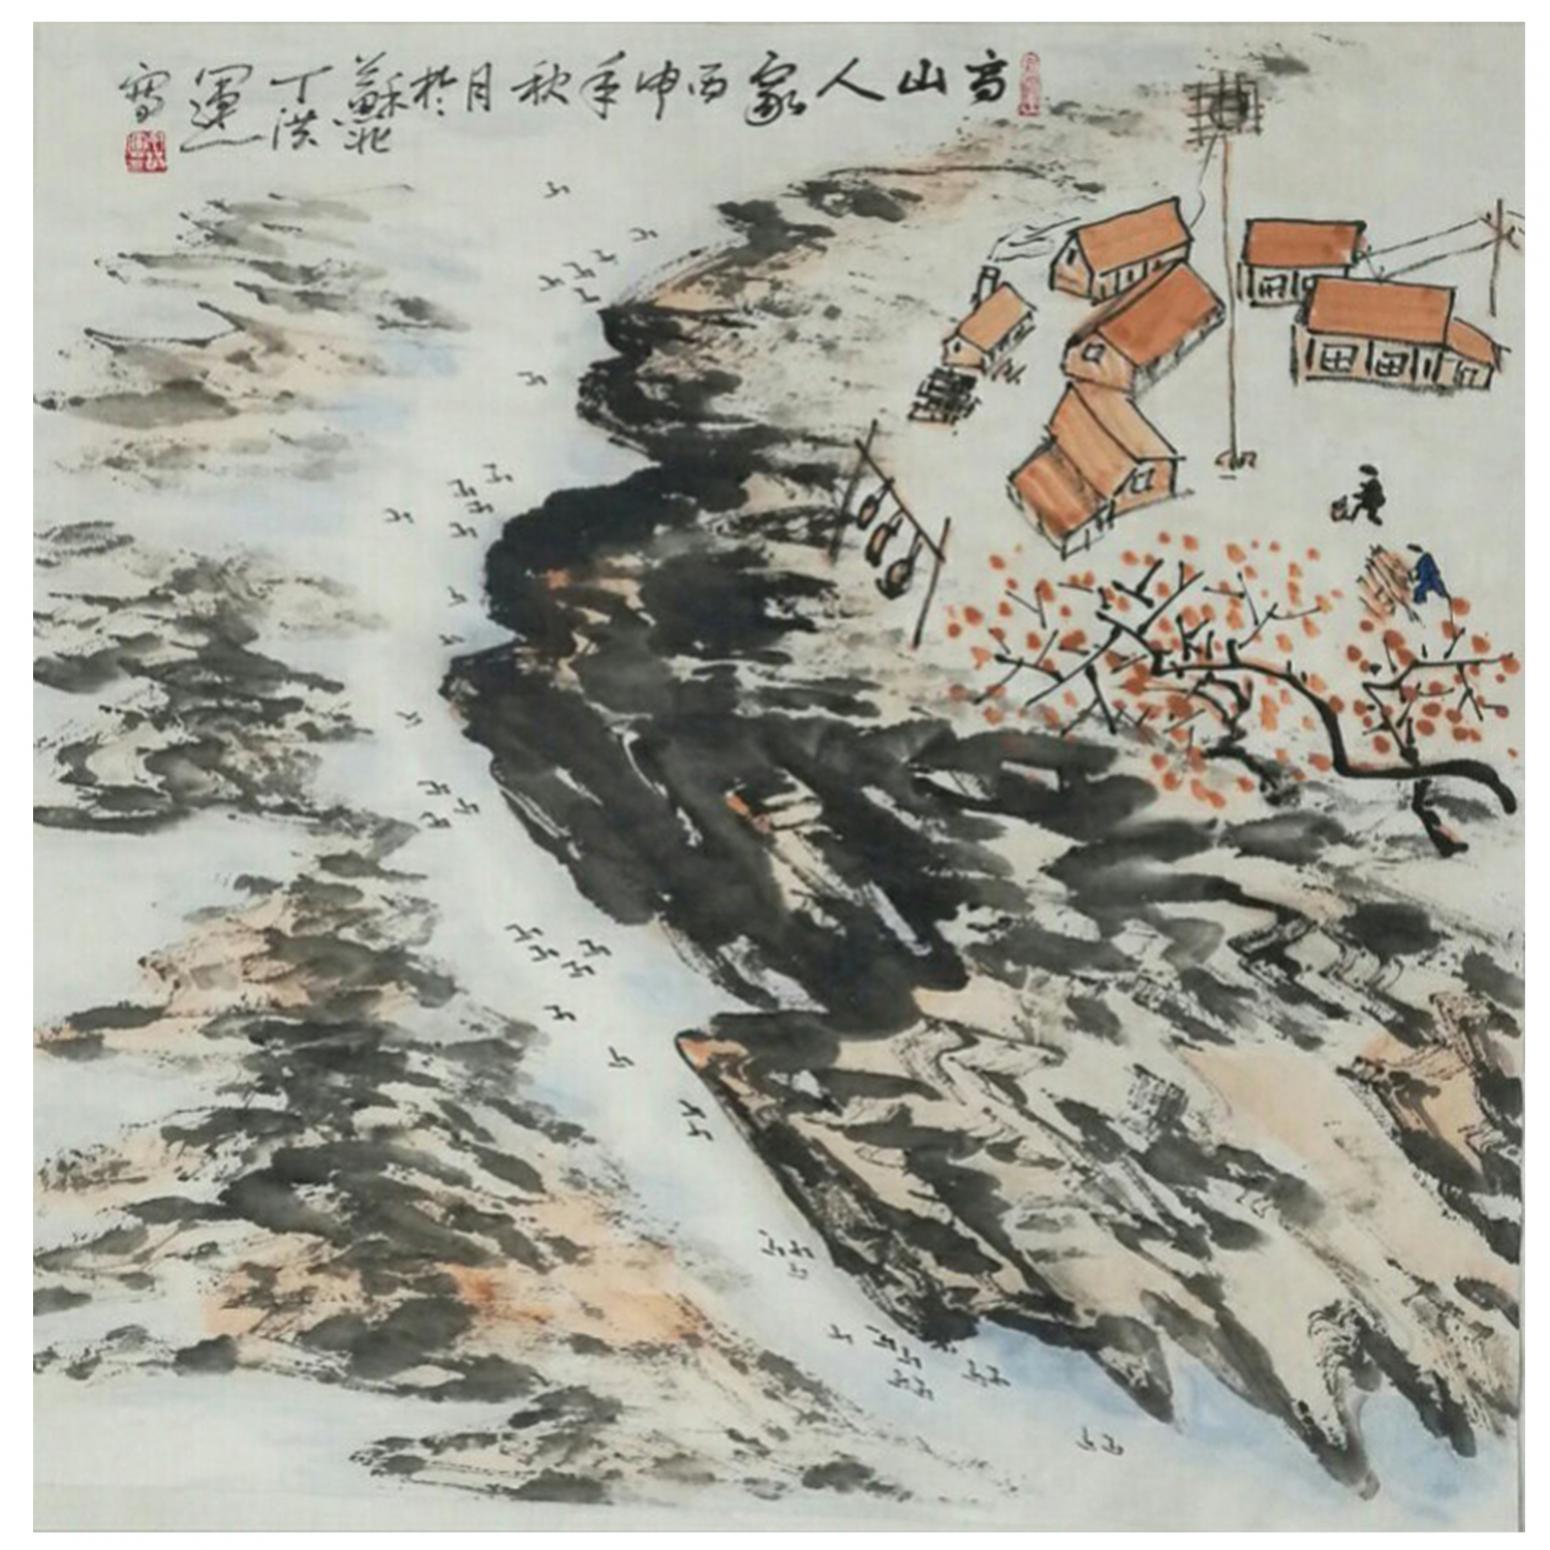 高山人家丙申年秋月於蘇北丁洪運寫